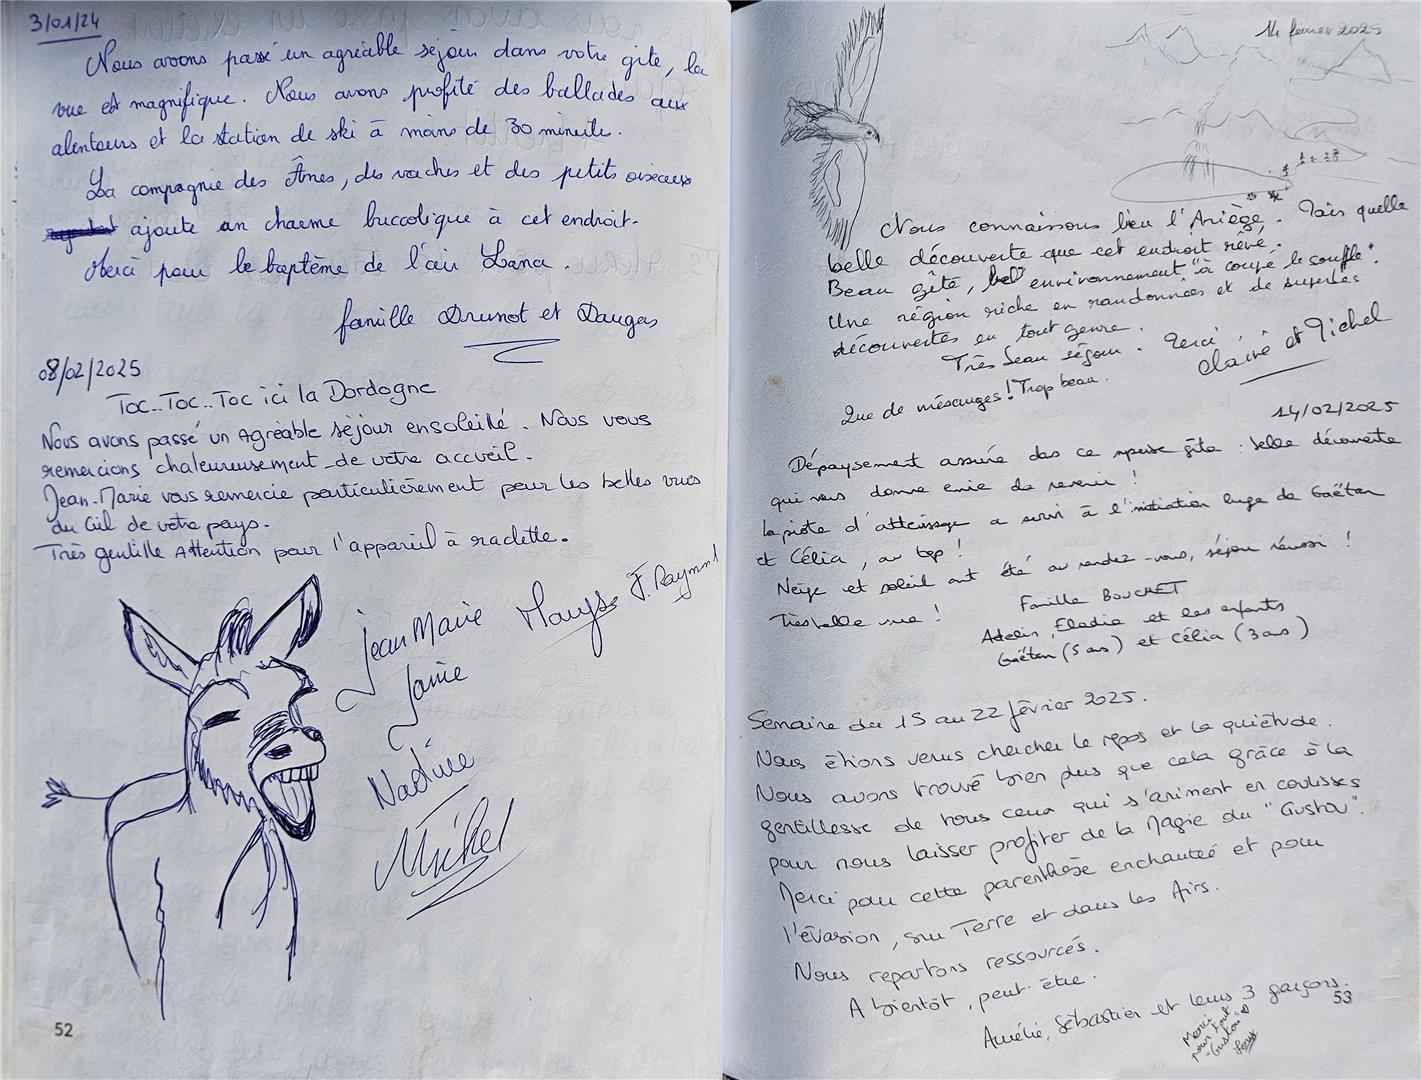 3/01/24
Nous avons passé un agréable séjour dans votre gite, la
vue est magnifique. Nous avons profité des ballades aux
alentours et la station de ski à moins de 30 minute.
La compagnie des Ânes, des vaches et des petits oiseaux
ajoute un charme buccolique à cet endroit.
Merci pour le baptème de l'air Lana.
famille Drunot et Daugas
08/02/2025
Toc..Toc..Toc ici la Dordogne
Nous avons passé un Agréable séjour ensoleillé. Nous vous
remercions chaleureusement de votre accueil.
Jean-Marie vous remercie particulièrement pour les belles vues
du Ciel de votre pays.
Très gentille Attention pour l'appareil à raclette.
Jean Marie Maryse F. Raymond
Janie
Nadine
Michel
52
14 février 2025
Nous connaissons bien l'Ariège. Mais quelle
belle découverte que cet endroit rêvé.
Beau gîte, bel environnement "à coupé le souffle".
Une région riche en randonnées et de superbes
découvertes en tout genre.
Très beau séjour. Merci.
Claire et Michel
Que de mésanges! Trop beau.
14/02/2025
Dépaysement assuré dans ce superbe gîte : belle découverte
qui nous donne envie de revenir !
la piste d'atterissage a servi à l'initiation luge de Gaëtan
et Célia, au top !
Neige et soleil ont été au rendez-vous, séjour réussi !
Très belle vue !
Famille BOUCHET
Elodie et les enfants
Gaëtan (5 ans) et Célia (3 ans)
Semaine du 15 au 22 février 2025.
Nous étions venus chercher le repos et la quiétude.
Nous avons trouvé bien plus que cela grâce à la
gentillesse de tous ceux qui s'animent en coulisses
pour nous laisser profiter de la Magie du "Gustou".
Merci pour cette parenthèse enchantée et pour
l'évasion, sur Terre et dans les Airs.
Nous repartons ressourcés.
A bientôt, peut être.
Aurélie, Sébastien et leurs 3 garçons.
Merci
pour tout
Gustou
53